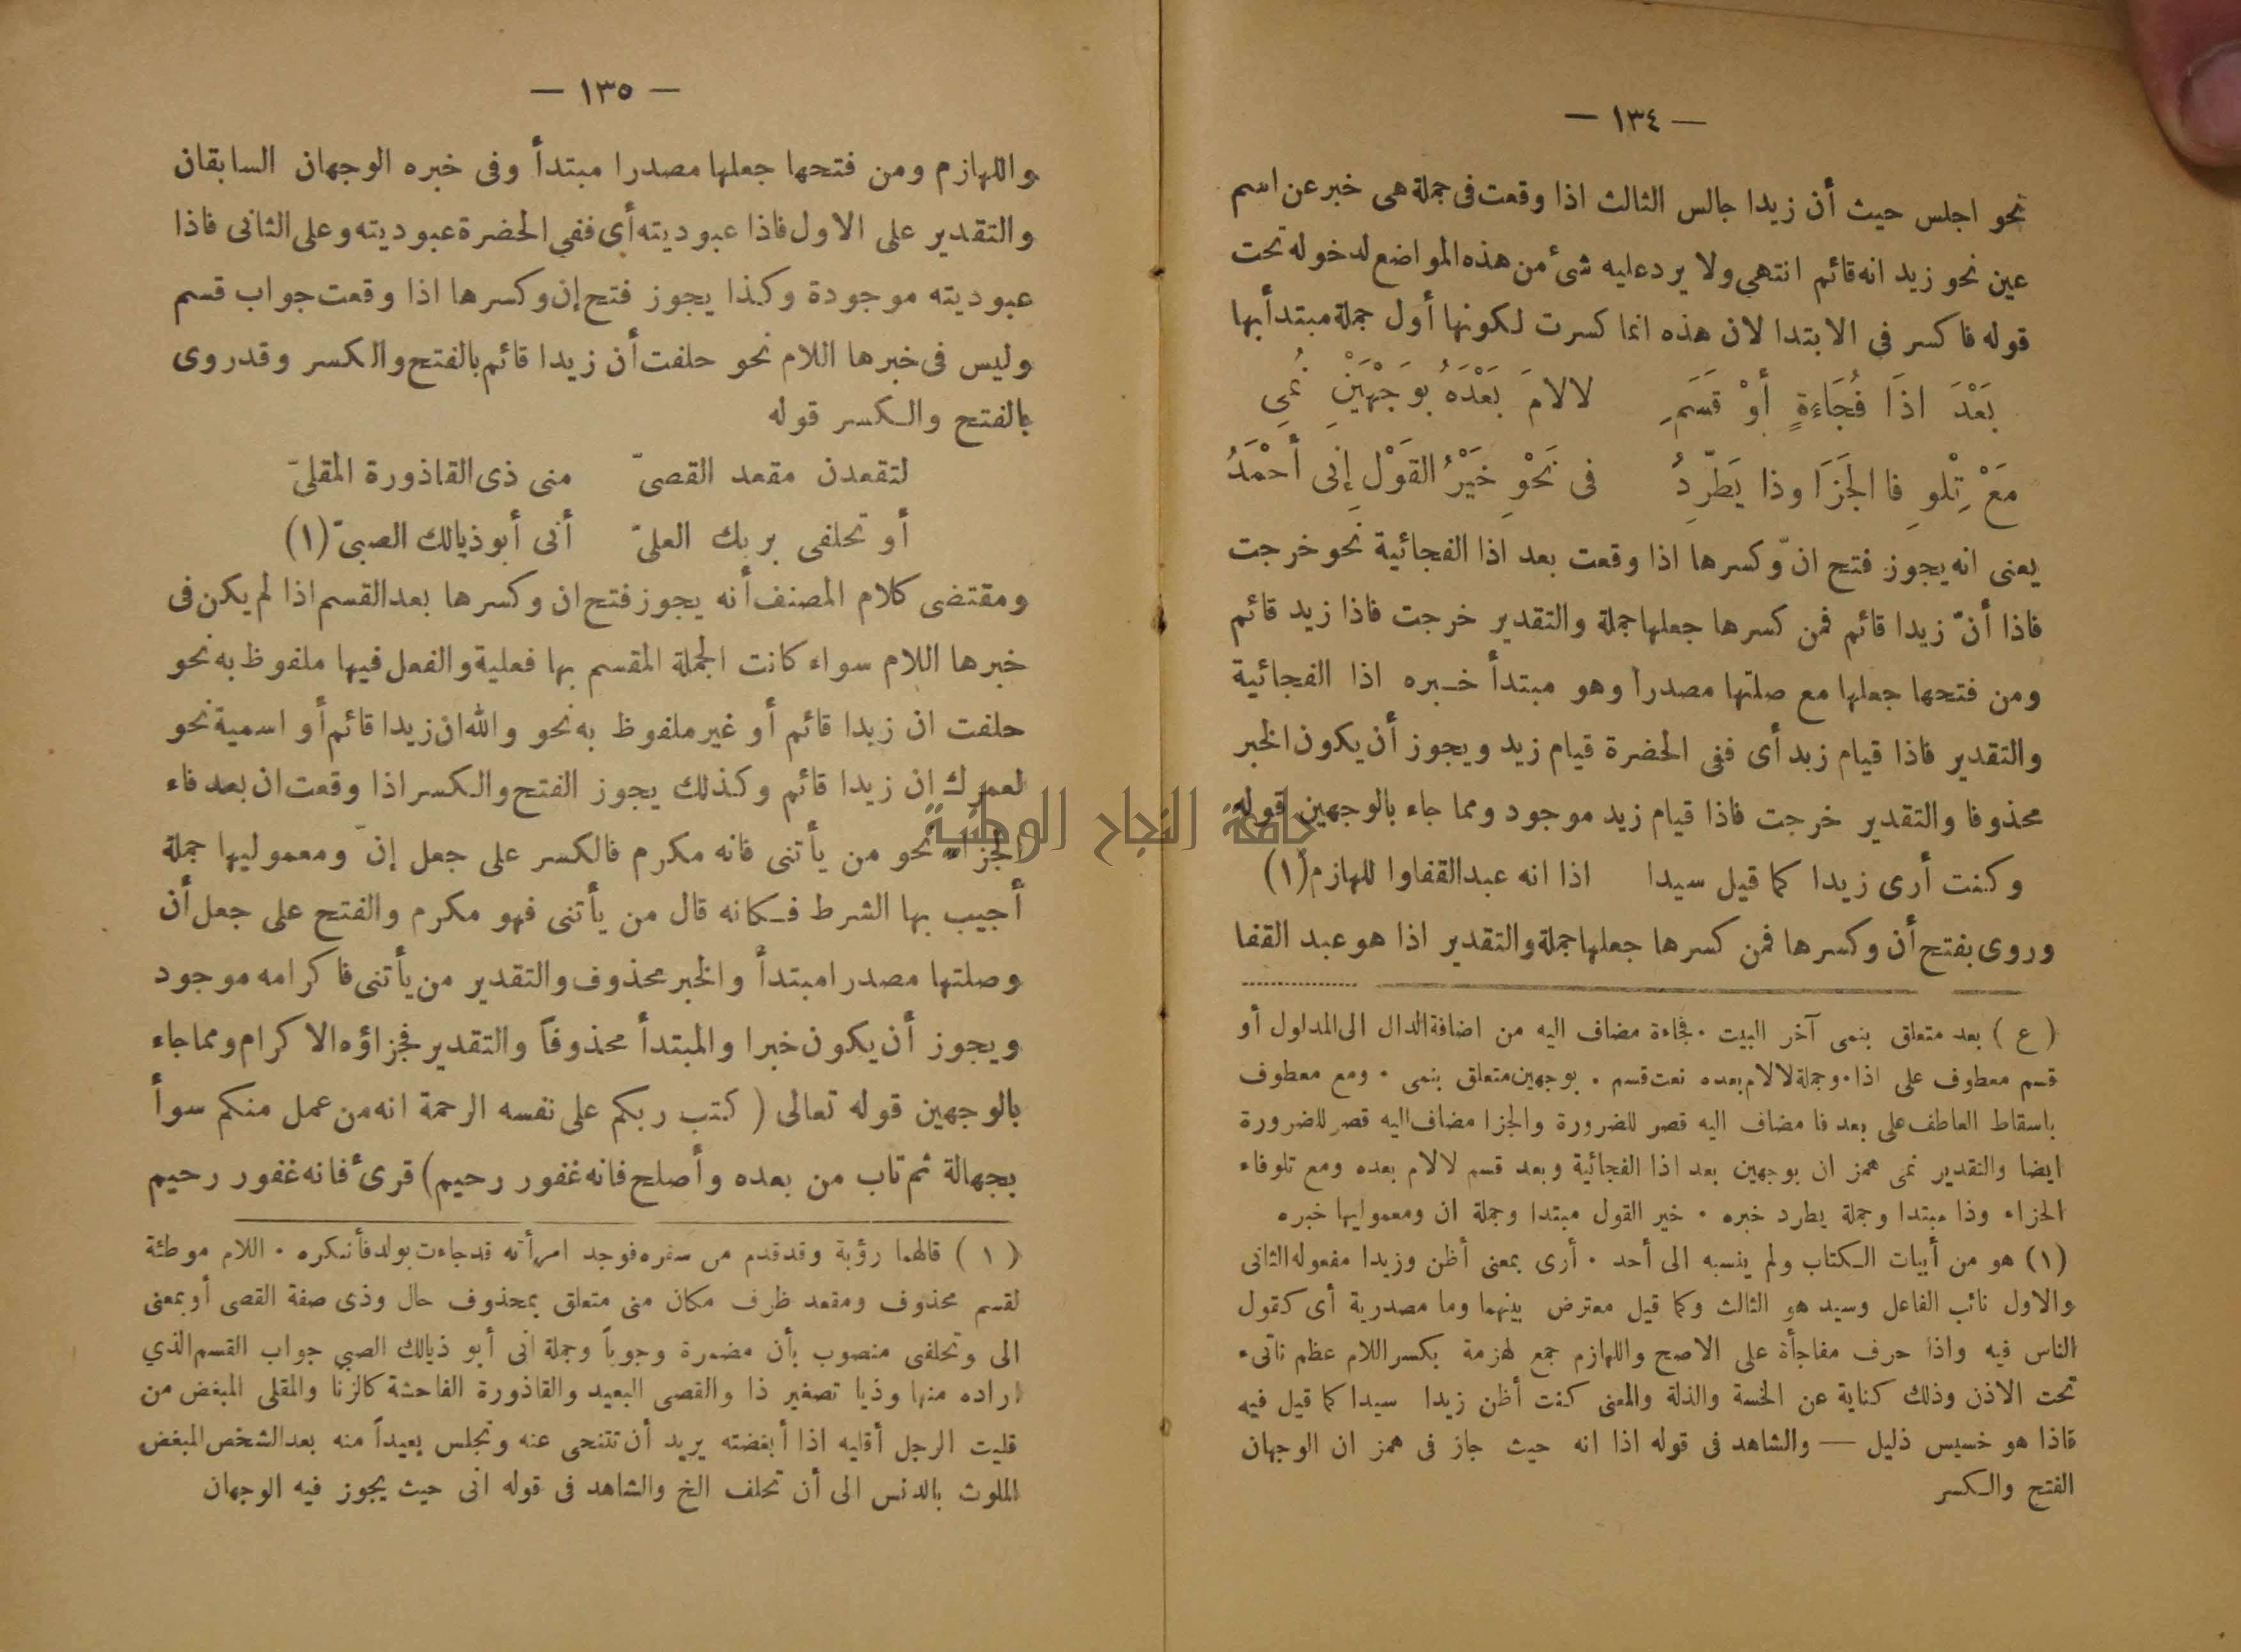 — ١٣٤ —
نحو اجلس حيث أن زيدا جالس الثالث اذا وقعت فى جملة هى خبر عن اسم
عين نحو زيد انه قائم انتهي ولا يرد عليه شئ من هذه المواضع لدخوله تحت
قوله فاكسر في الابتدا لان هذه انما كسرت لكونها أول جملة مبتدأ بها
بَعْدَ اذَا فُجَاءَةٍ أوْ قَسَمِ لالامَ بَعْدَهُ بوَجْهَيْنِ نُمِي
مَعْ تِلْوِ فا الجَزَا وذا يَطّرِدُ فى نَحْوِ خَيْرُ القوْلِ إنِى أحْمَدُ
يعنى انه يجوز فتح انّ وكسرها اذا وقعت بعد اذا الفجائية نحو خرجت
فاذا أنّ زيدا قائم فمن كسرها جعلها جملة والتقدير خرجت فاذا زيد قائم
ومن فتحها جعلها مع صلتها مصدرا وهو مبتدأ خبره اذا الفجائية
والتقدير فاذا قيام زيد أى ففى الحضرة قيام زيد ويجوز أن يكون الخبر
محذوفا والتقدير خرجت فاذا قيام زيد موجود ومما جاء بالوجهين قوله
وكنت أرى زيدا كما قيل سيدا اذا انه عبد القفا واللهازم (١)
وروى بفتح أن وكسرها فمن كسرها جعلها جملة والتقدير اذا هو عبد القفا
( ع ) بعد متعلق بنمى آخر البيت ٠ فجاءة مضاف اليه من اضافة الدال الى المدلول أو
قسم معطوف على اذا ٠ وجملة لالام بعده نعت قسم ٠ بوجهين متعلق بنمى ٠ ومع معطوف
باسقاط العاطف على بعد فا مضاف اليه قصر للضرورة والجزا مضاف اليه قصر للضرورة
ايضا والتقدير نمى همز ان بوجهين بعد اذا الفجائية وبعد قسم لا لام بعده ومع تلو فاء
الجزاء وذا مبتدا وجملة يطرد خبره ٠ خير القول مبتدا وجملة ان ومعموليها خبره
(١) هو من أبيات الكتاب ولم ينسبه الى أحد ٠ أرى بمعنى أظن وزيدا مفعوله الثانى
والاول نائب الفاعل وسيد هو الثالث وكما قيل معترض بينهما وما مصدرية أى كقول
الناس فيه واذا حرف مفاجأة على الاصح واللهازم جمع لهزمة بكسر اللام عظم ناتىء
تحت الاذن وذلك كناية عن الخسة والذلة والمعنى كنت أظن زيدا سيدا كما قيل فيه
فاذا هو خسيس ذليل — والشاهد فى قوله اذا انه حيث جاز فى همز ان الوجهان
الفتح والكسر
— ١٣٥ —
واللهازم ومن فتحها جعلها مصدرا مبتدأ وفى خبره الوجهان السابقان
والتقدير على الاول فاذا عبوديته أي ففي الحضرة عبوديته وعلى الثانى فاذا
عبوديته موجودة وكذا يجوز فتح إن وكسرها اذا وقعت جواب قسم
وليس فى خبرها اللام نحو حلفت أن زيدا قائم بالفتح والكسر وقد روى
بالفتح والكسر قوله
لتقعدن مقعد القصىّ منى ذى القاذورة المقلىّ
أو تحلفى بربك العلىّ أنى أبو ذيالك الصبىّ (١)
ومقتضى كلام المصنف أنه يجوز فتح ان وكسرها بعد القسم اذا لم يكن فى
خبرها اللام سواء كانت الجملة المقسم بها فعلية والفعل فيها ملفوظ به نحو
حلفت ان زيدا قائم أو غير ملفوظ به نحو والله ان زيدا قائم أو اسمية نحو
لعمرك ان زيدا قائم وكذلك يجوز الفتح والكسر اذا وقعت ان بعد فاء
الجزاء نحو من يأتنى فانه مكرم فالكسر على جعل إنّ ومعموليها جملة
أجيب بها الشرط فكانه قال من يأتنى فهو مكرم والفتح على جعل أن
وصلتها مصدرا مبتدأ والخبر محذوف والتقدير من يأتنى فاكرامه موجود
ويجوز أن يكون خبرا والمبتدأ محذوفاً والتقدير فجزاؤه الاكرام ومما جاء
بالوجهين قوله تعالى ( كتب ربكم على نفسه الرحمة انه من عمل منكم سوأ
بجهالة ثم تاب من بعده وأصلح فانه غفور رحيم ) قرئ فانه غفور رحيم
( ١ ) قالهما رؤبة وقد قدم من سفره فوجد امرأته قد جاءت بولد فأنكره ٠ اللام موطئة
لقسم محذوف ومقعد ظرف مكان منى متعلق بمحذوف حال وذى صفة القصى أو بمعنى
الى وتحلفى منصوب بأن مضمرة وجوباً وجملة انى أبو ذيالك الصبي جواب القسم الذي
اراده منها وذيا تصغير ذا والقصى البعيد والقاذورة الفاحشة كالزنا والمقلى المبغض من
قليت الرجل أقليه اذا أبغضته يريد أن تتنحى عنه وتجلس بعيداً منه بعد الشخص المبغض
الملوث بالدنس الى أن تحلف الخ والشاهد فى قوله انى حيث يجوز فيه الوجهان
جامعة النجاح الوطنية